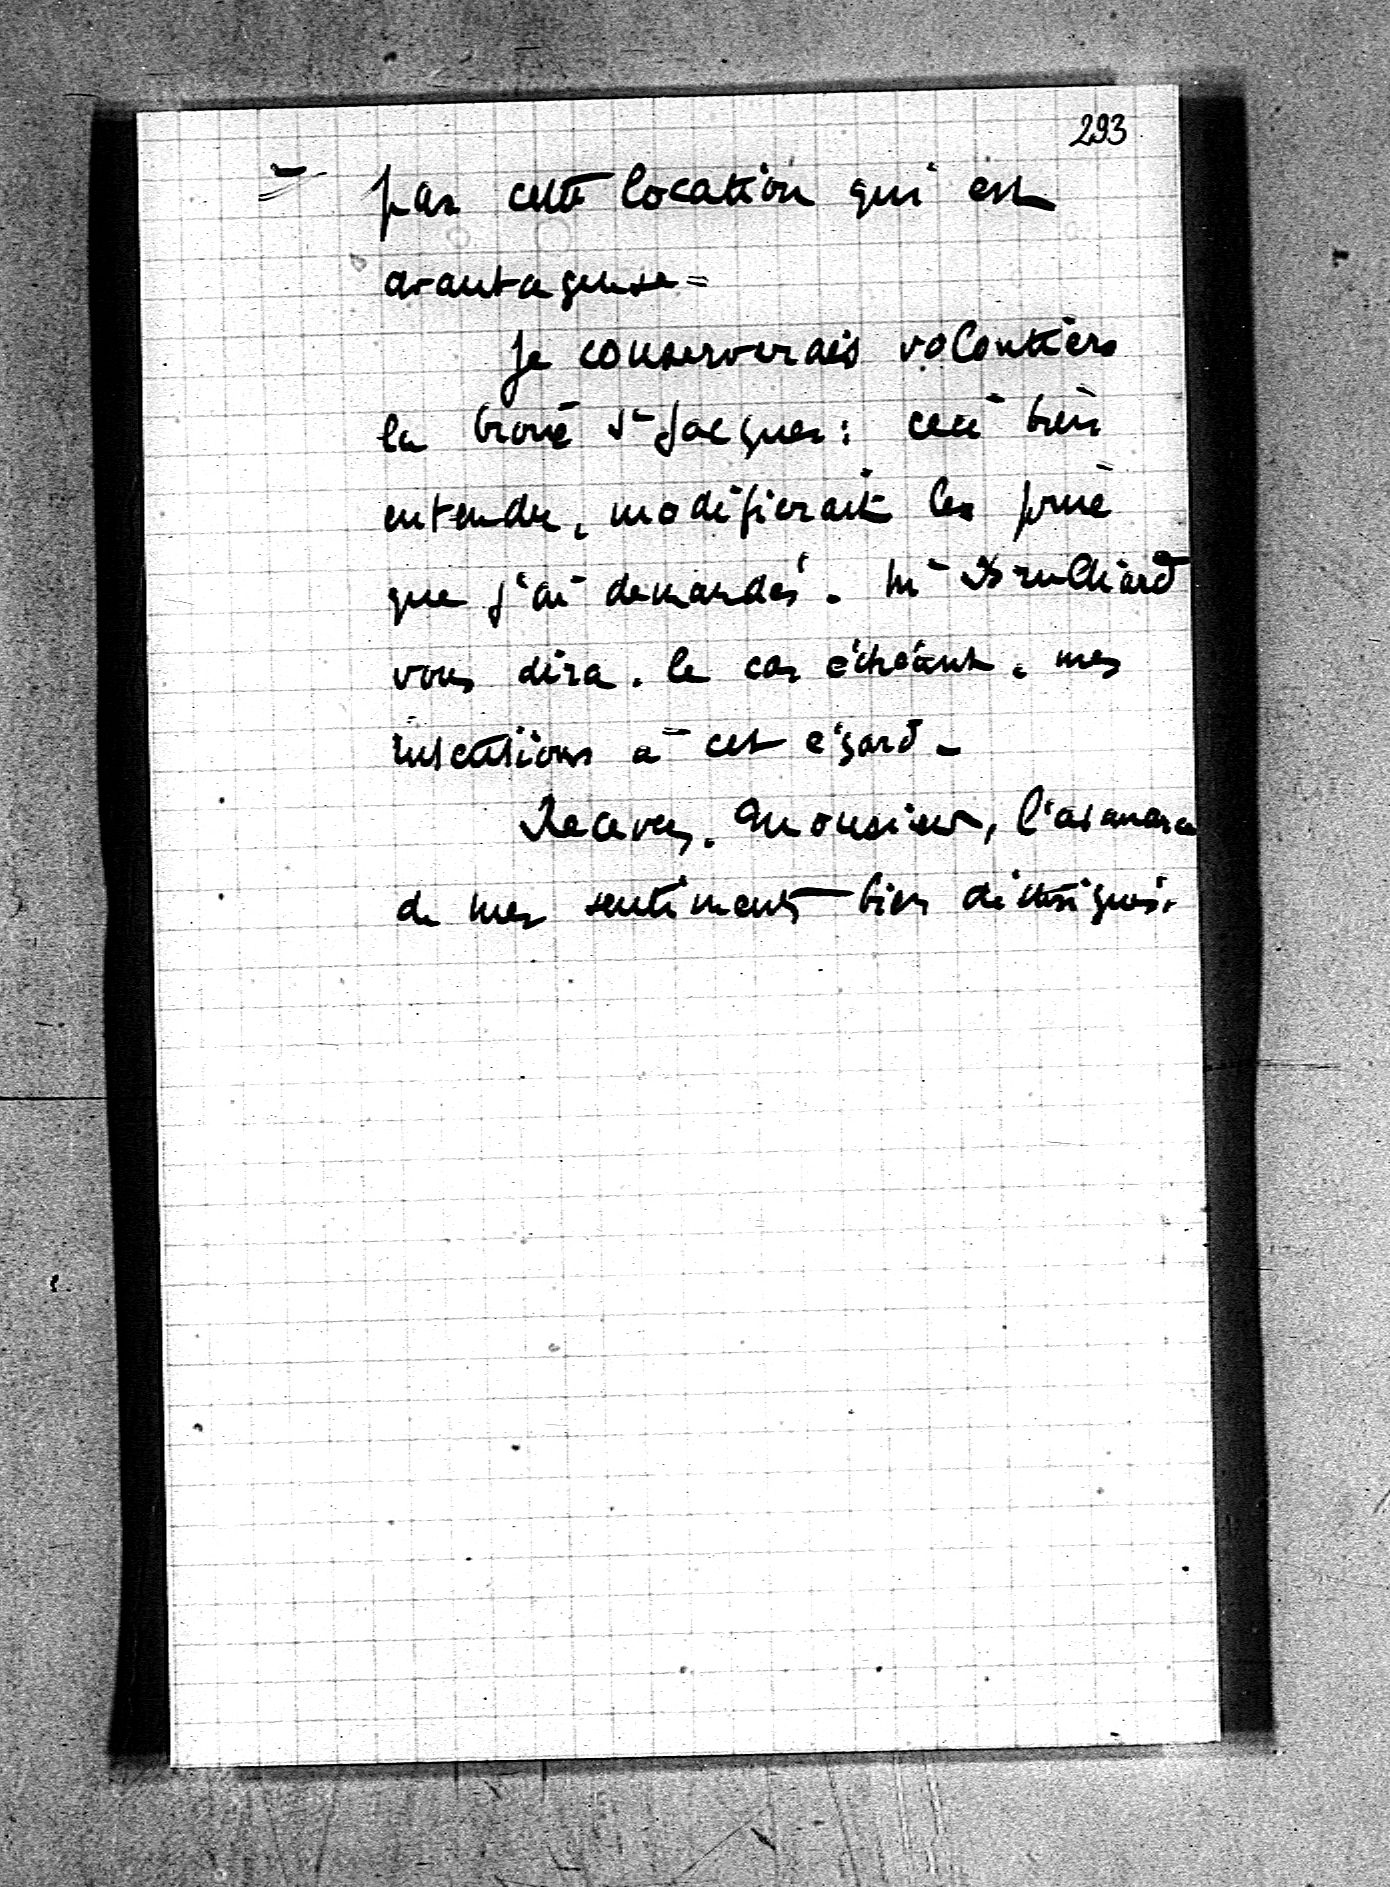 293
par cette location qui est
avantageuse =
Je conserverais volontiers
la St Jacques : ceci bien
entendu, modifierait les prix
que j'ai demandés. Me Brulliard
vous dira, le cas échéant, mes
intentions à cet égard -
Recevez, Monsieur, l'assurance
de mes sentiments bien distingués.